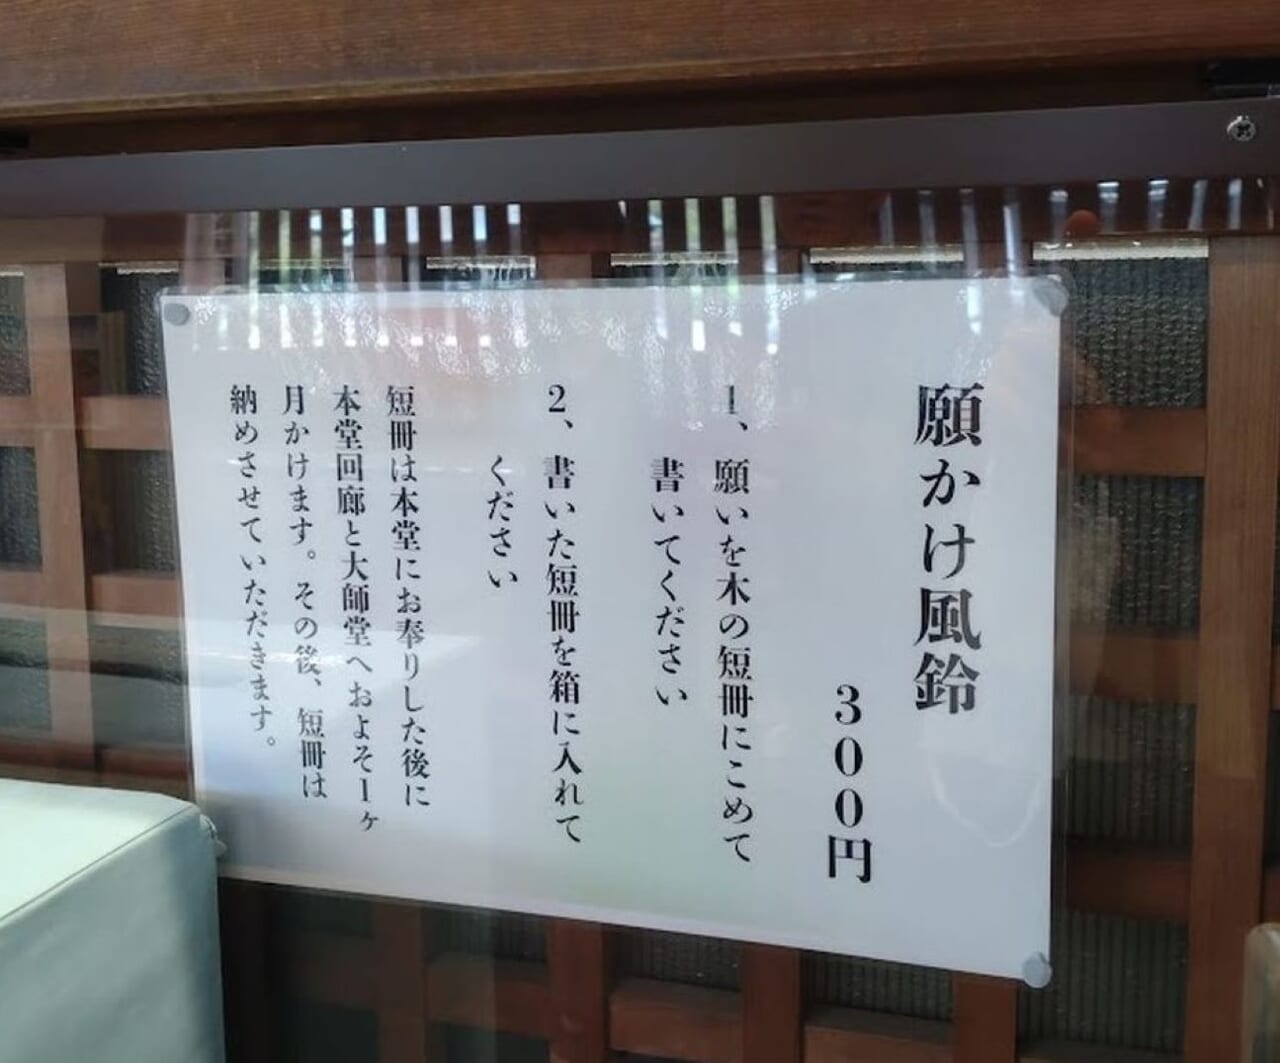 願かけ風鈴
300円
1、願いを木の短冊にこめて
書いてください
2、書いた短冊を箱に入れて
ください
短冊は本堂にお奉りした後に
本堂回廊と大師堂へおよそ1ヶ
月かけます。その後、短冊は
納めさせていただきます。